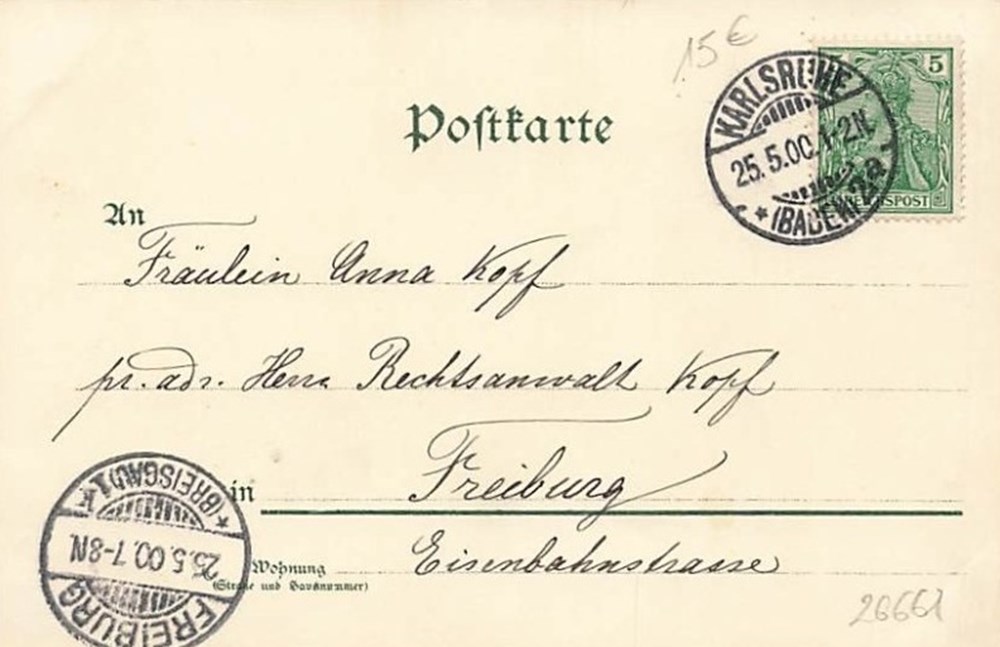 15 €
5
REICHSPOST
KARLSRUHE
25.5.00.1-2N.
* (BADEN) 2a
Postkarte
An
Fräulein Anna Kopf
pr. adr. Herrn Rechtsanwalt Kopf
in Freiburg
Wohnung
(Straße und Hausnummer)
Eisenbahnstrasse
* (BREISGAU) 1 k
25.5.00.7-8N.
FREIBURG
26661